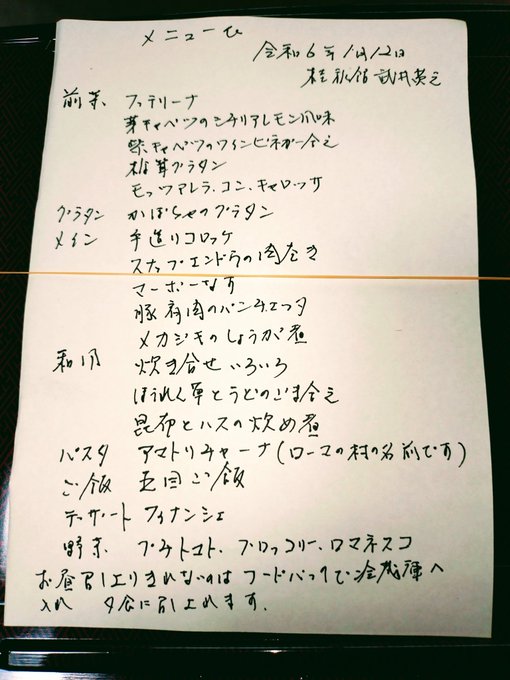 メニュー
令和6年1月12日
前菜 フッテリーナ
芽キャベツのシチリアレモン風味
紫キャベツのワインビネガー合え
椎茸グラタン
モッツアレラ、コン、キャロッサ
グラタン かぼちゃのグラタン
メイン 手造りコロッケ
スナップエンドウの肉巻き
マーボーなす
豚肩肉のパンチェッタ
メカジキのしょうが煮
和風 炊き合せいろいろ
ほうれん草とうどのごま合え
昆布とハスの炊め煮
パスタ アマトリチャーナ(ローマの村の名前です)
ご飯 五目ご飯
デザート フィナンシェ
野菜、プチトマト、ブロッコリー、ロマネスコ
お昼召し上りきれないのはフードパックで冷蔵庫へ
入れ 夕食に召し上れます。